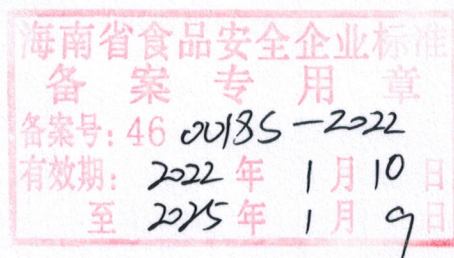 海南省食品安全企业标准
备案专用章
备案号：46 0018S-2022
有效期：2022年1月10日
至2025年1月9日